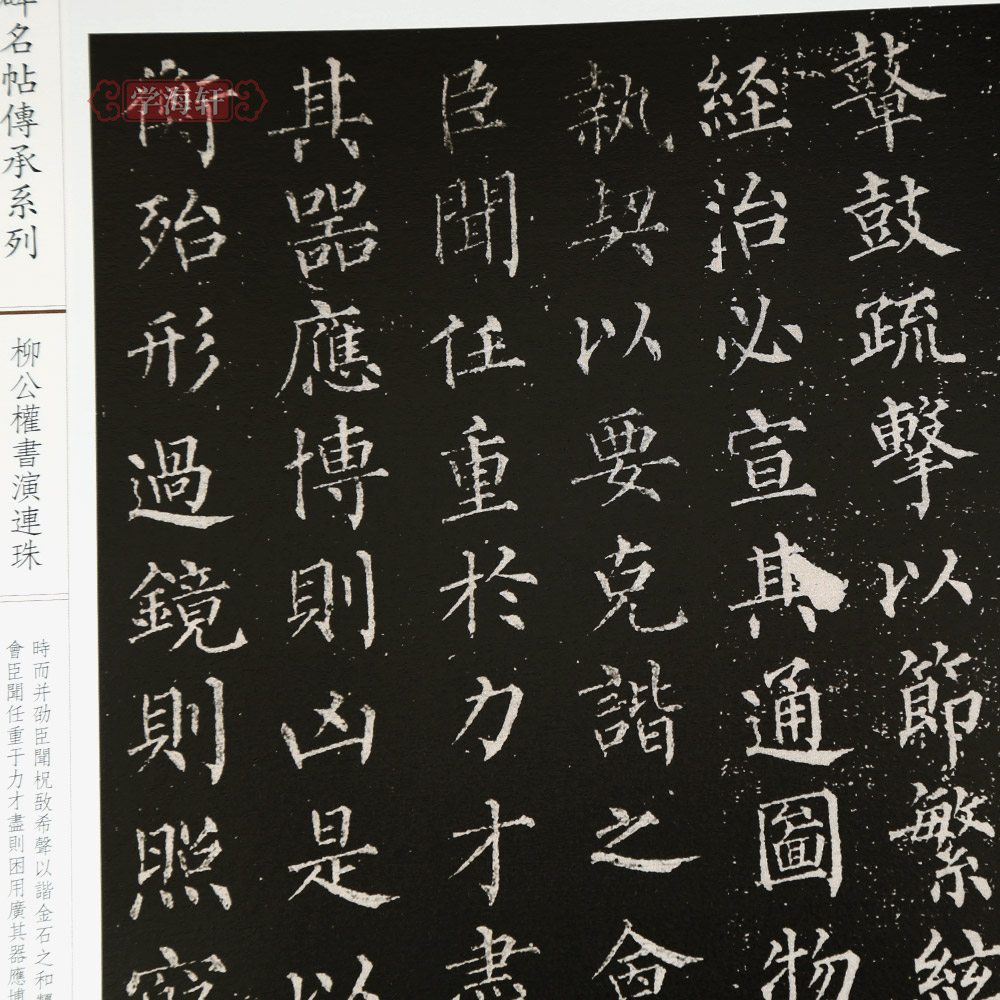 鼙鼓疏擊以節繁絃
經治必宣其通圖物
執契以要克諧之會
臣聞任重於力才盡
其器應博則凶是以
衡殆形過鏡則照窮
学海轩
碑名帖傳承系列
柳公權書演連珠
時而并劭臣聞柷敔希聲以諧金石之和鼙
會臣聞任重于力才盡則困用廣其器應博